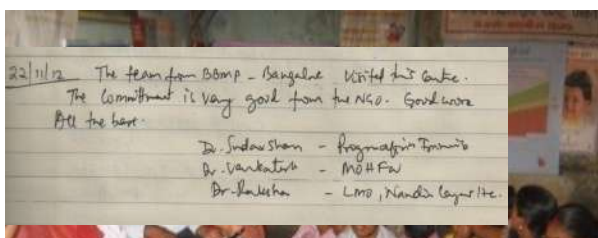 22/11/12 The team from BBMP - Bangalore visited this centre.
The Commitment is very good from the NGO. Good work
All the best.
Dr. Sudarshan -
Dr. Venkatesh - MOHFW
Dr. - LMO, Nandini Layout